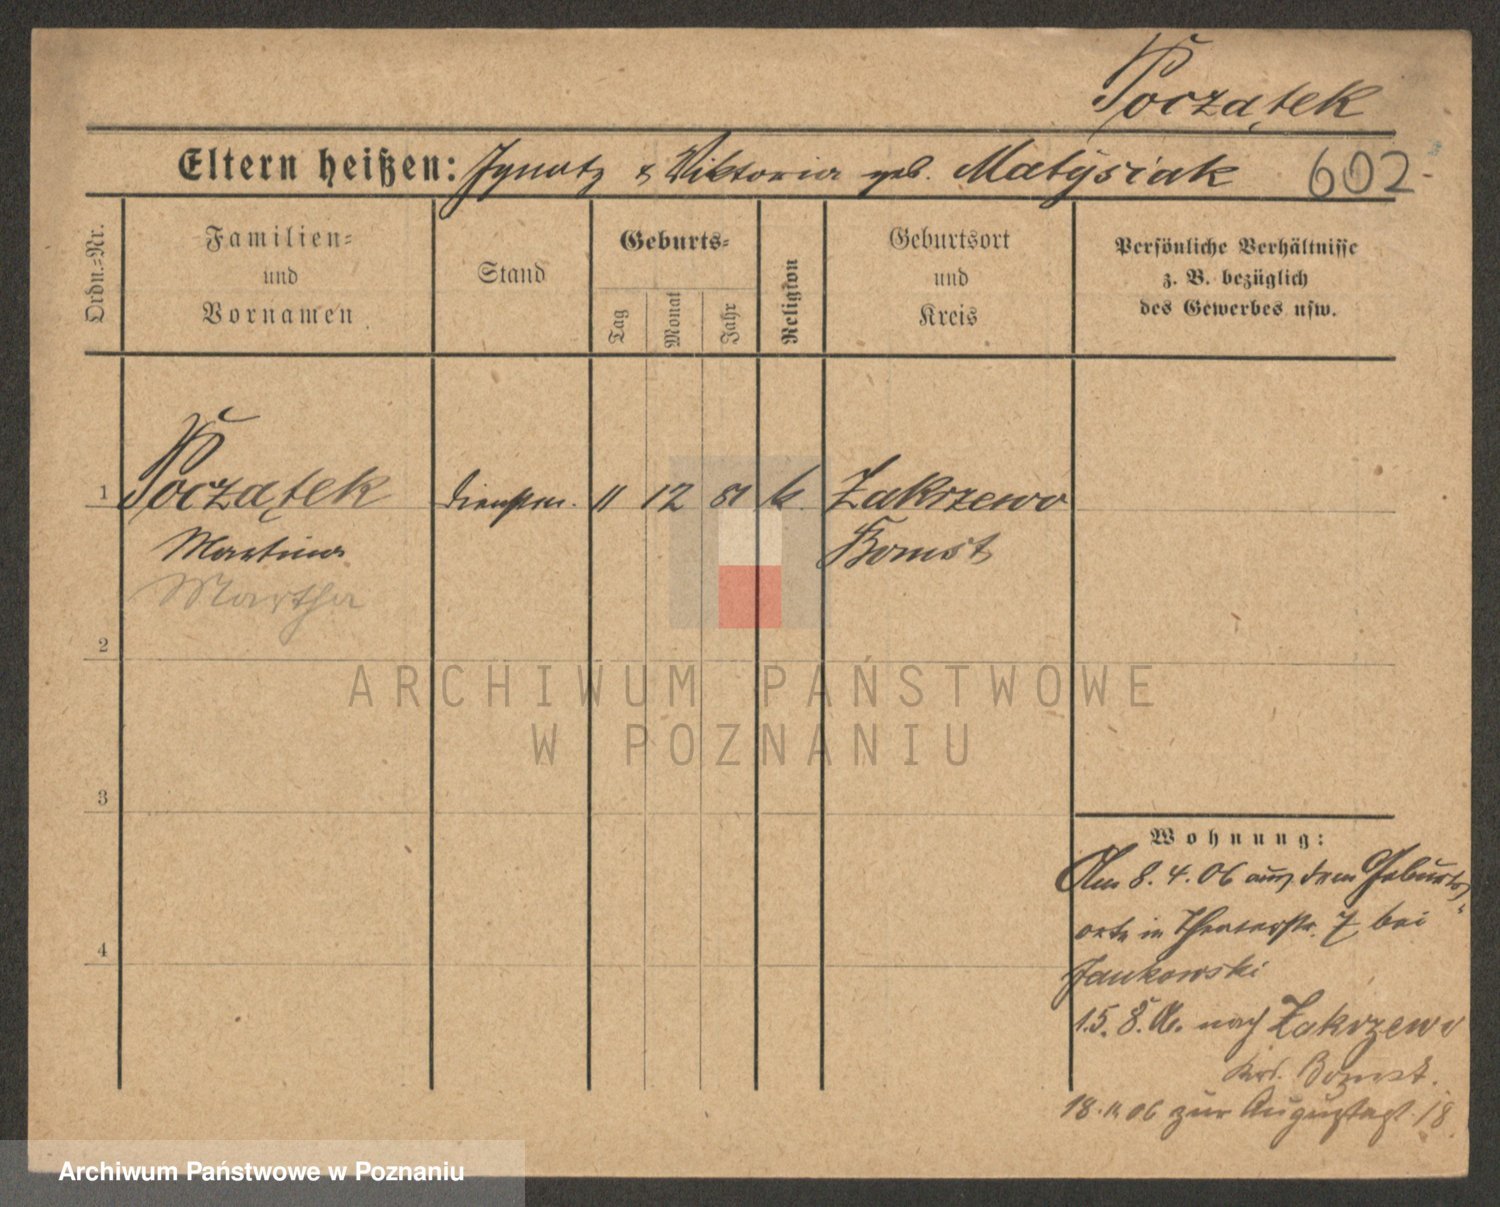 Początek
Eltern heißen: Ignatz & Wiktoria geb. Matysiak 602
Ordn.-Nr.
Familien-
und
Vornamen
Stand
Geburts-
Tag
Monat
Jahr
Religion
Geburtsort
und
Kreis
Persönliche Verhältnisse
z. B. bezüglich
des Gewerbes usw.
1 Początek 11 12 81 k. Zakrzewo
Martina Bomst
Martha
2
ARCHIWUM PAŃSTWOWE
W POZNANIU
3
Wohnung:
Am 8.4.06 aus dem Geburts-
orte in Theaterstr. 7 bei
Jankowski
15.8. nach Zakrzewo
Krs. Bomst.
4
18.11.06 zur 18
Archiwum Państwowe w Poznaniu